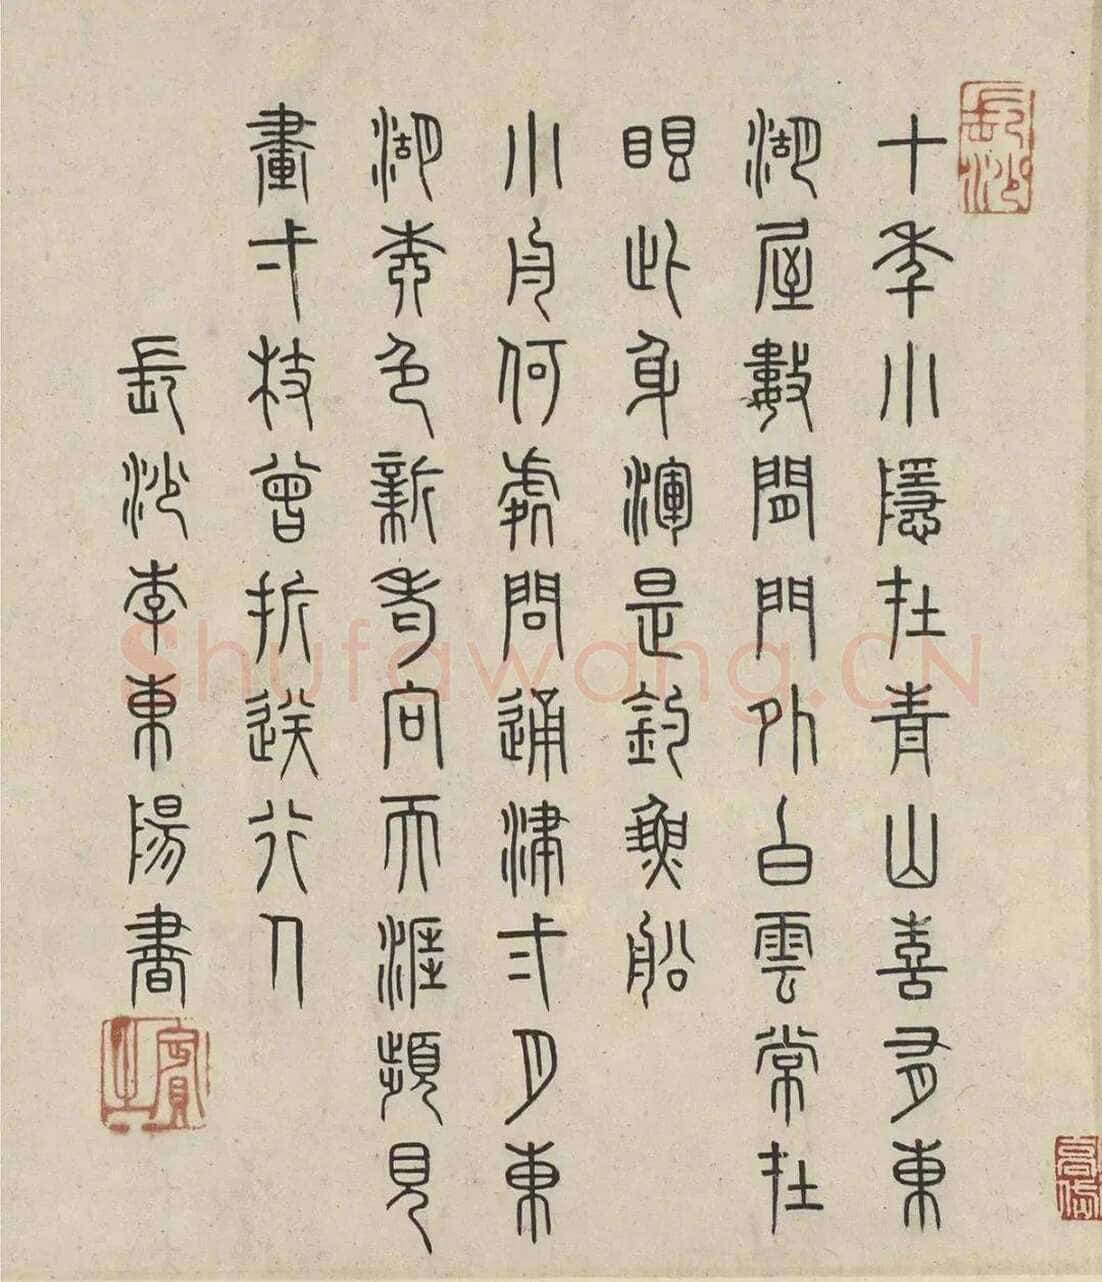 長沙
十年小隱在青山喜有東
湖屋數間門外白雲常在
眼此身渾是釣魚船
小舟何處問通津弍月東
湖柳色新老向天涯頻見
畫弌枝曾折送行人
長沙李東陽書
賓之
Shufawang.CN